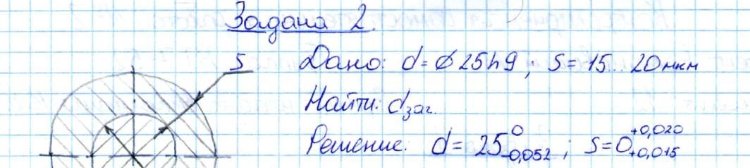 Задача 2.
S
Дано: d=⌀25h9; S=15...20мкм
Найти: dзаг.
Решение. d=25⁰₋₀,₀₅₂; S=0⁺⁰,⁰²⁰₊₀,₀₁₅